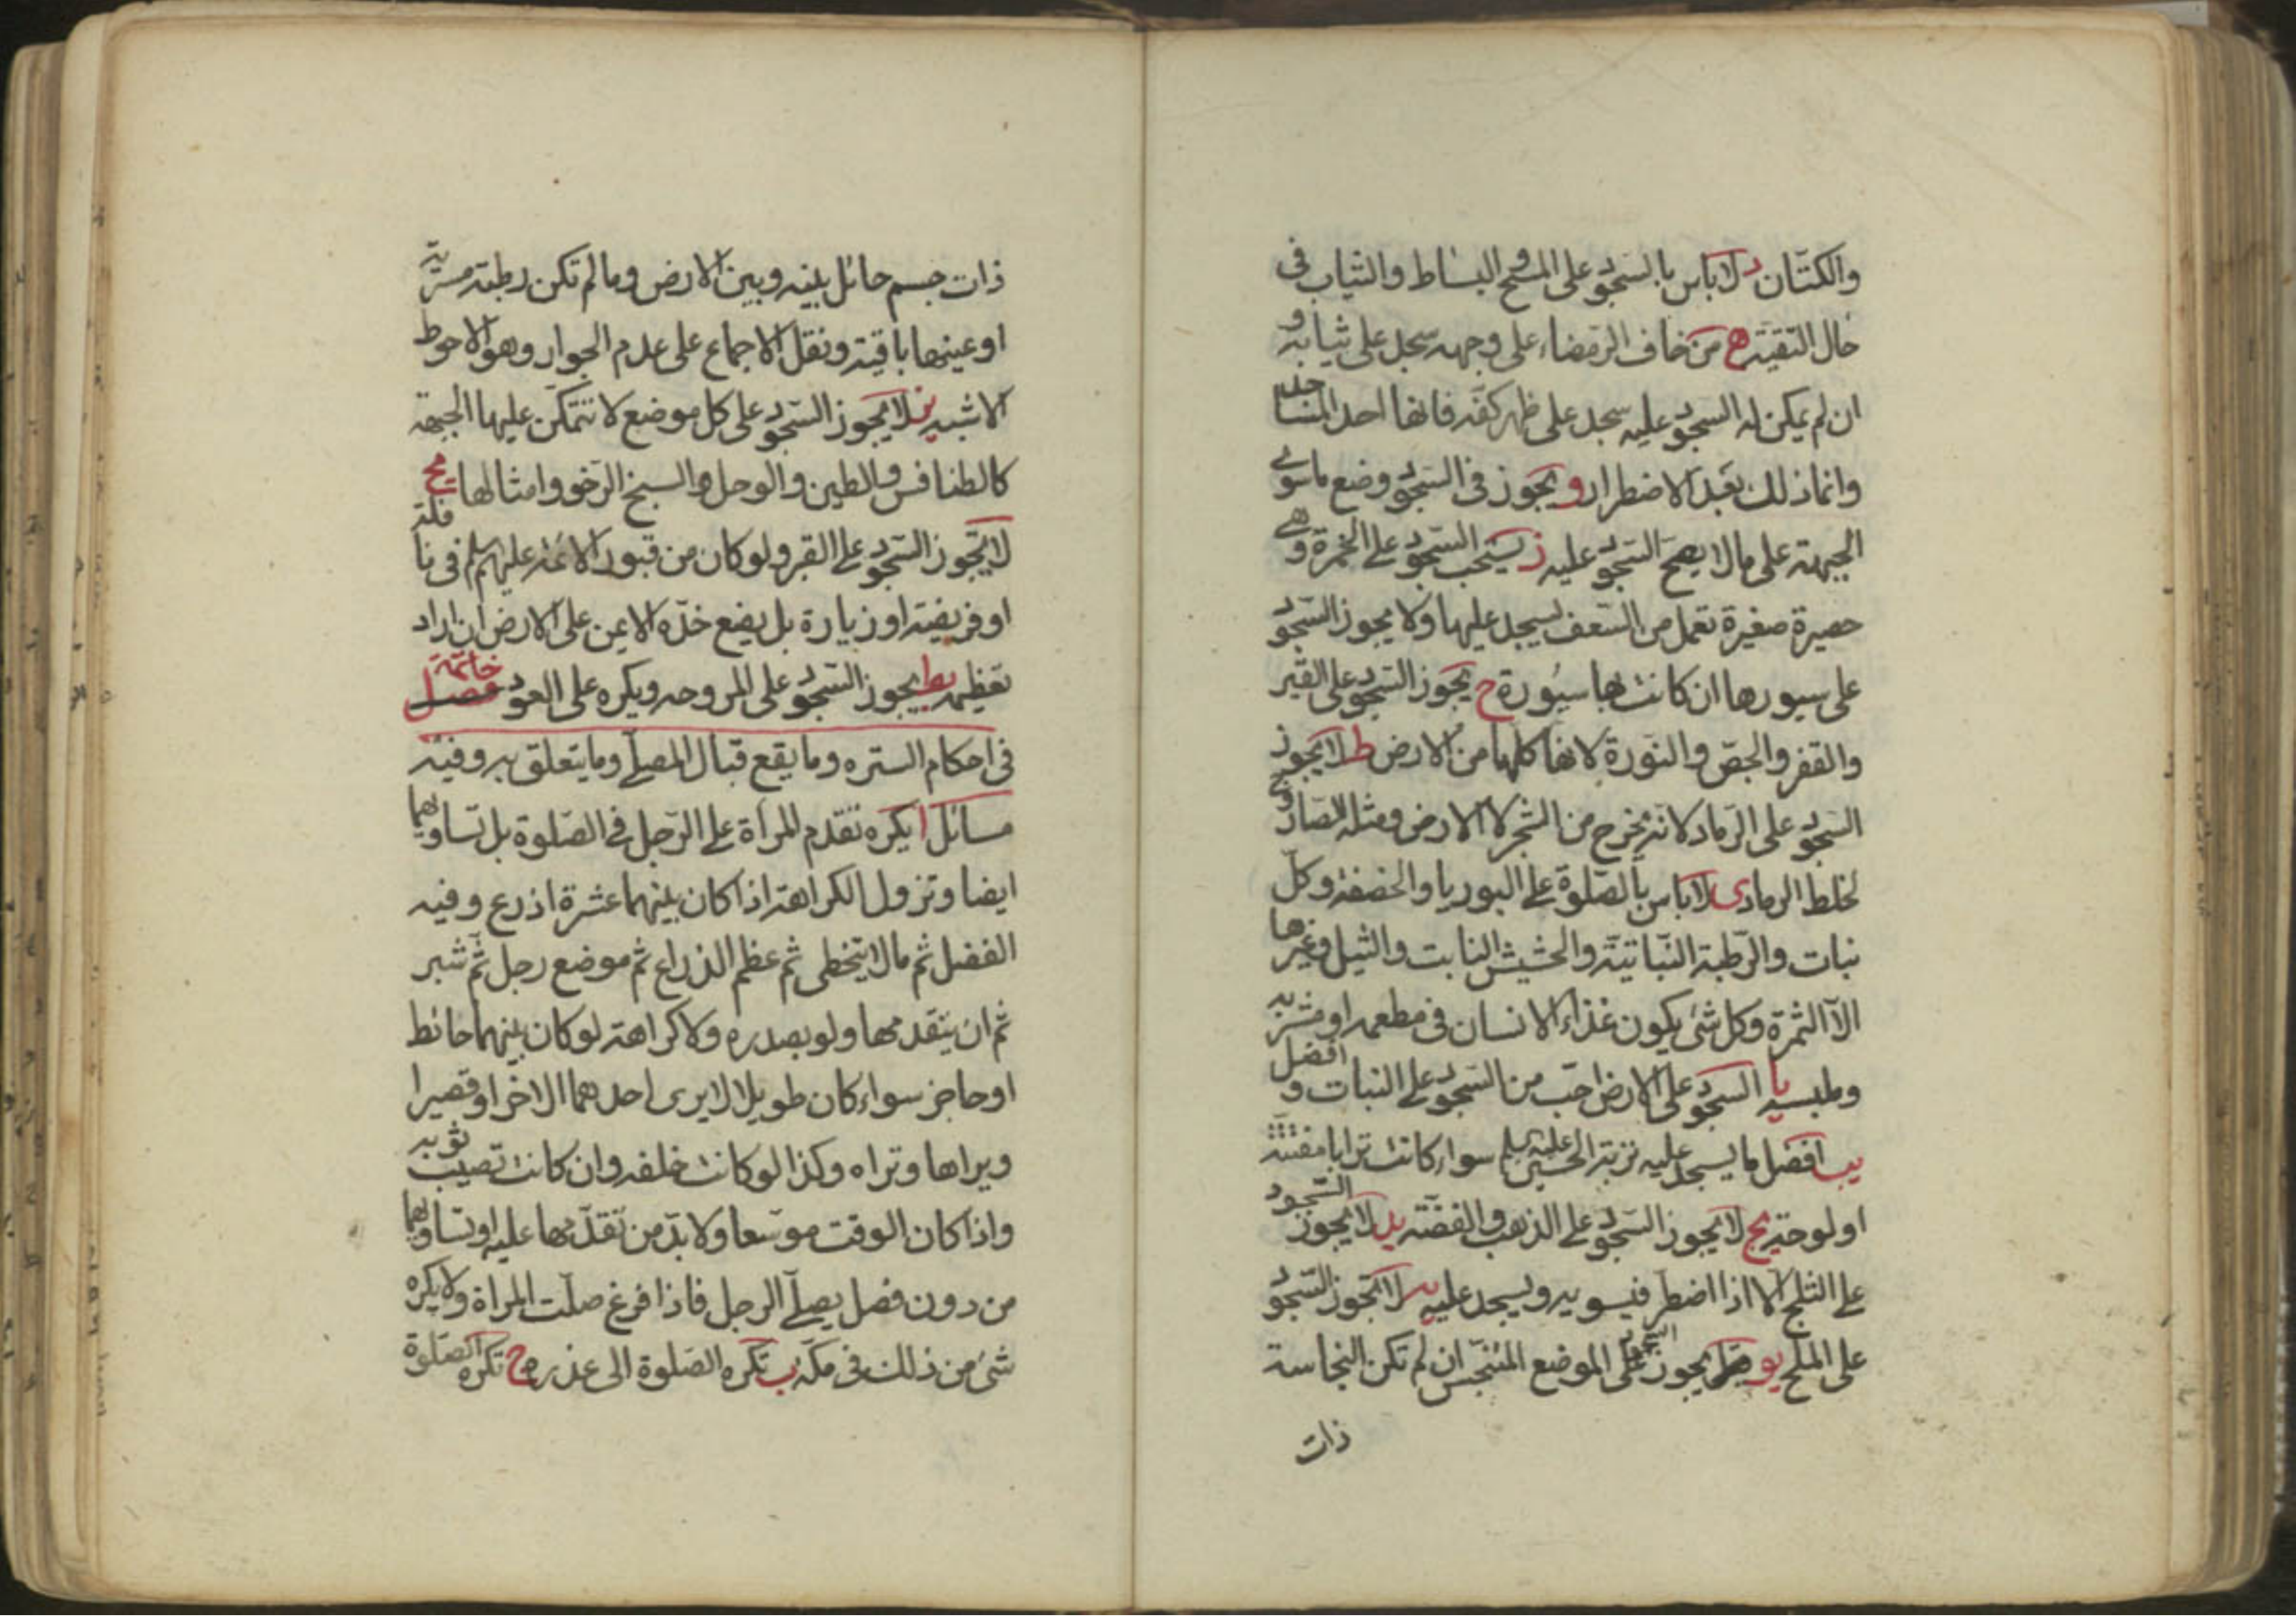 والكتّان د لا باس بالسّجود على المسح و البساط والثياب فى
حال التقيّة ه من خاف الرّمضاء على وجهه سجد على ثيابه و
ان لم يمكن له السجود عليه سجد على ظهر كفّه فانها احد المساجد
وانما ذلك بعد الاضطرار و يجوز فى السّجود وضع ما سوى
الجبهة على ما لا يصحّ السّجود عليه ز يستحب السّجود على الخمرة وهى
حصيرة صغيرة تعمل من السّعف يسجد عليها ولا يجوز السّجود
على سيورها ان كانت لها سيورة ح يجوز السّجود على القير
والقفر والجصّ والنّورة لانها كلها من الارض ط لا يجوز
السّجود على الرّماد لانّه يخرج من الشّجر لا الارض ومثله الصّاروج
لخلط الرماد ى لا باس بالصّلوة على البوريا والخصفة وكلّ
نبات والرّطبة النّباتيّة والحشيش النابت والثيل وغيرها
الّا الثمرة وكل شئ يكون غذاء الانسان فى مطعمه او مشربه
وملبسه يا السّجود على الارض احبّ من السّجود على النبات و افضل
يب افضل ما يسجد عليه تربة الحسين عليه السلم سواء كانت ترابا
او لوحة يج لا يجوز السّجود على الذهب و الفضّة يد لا يجوز السّجود
على الثلج الا اذا اضطر فيسويه ويسجد عليه يه لا يجوز السّجود
على الملح يو يجوز السّجود على الموضع المتنجّس ان لم تكن النجاسة
ذات
ذات جسم حائل بينه وبين الارض وما لم تكن رطبة مسرية
او عينها باقية ونقل الاجماع على عدم الجواز وهو الاحوط
الاشبه يز لا يجوز السّجود على كل موضع لا تتمكّن عليها الجبهة
كالطنافس والطين والوحل والسبخ الرّخو وامثالها يح
لا يجوز السّجود على القبر ولو كان من قبور الائمة عليهم السلم فى نافلة
او فريضة او زيارة بل يضع خدّه الايمن على الارض ان اراد
تعظيمه يط يجوز السّجود على المروحه ويكره على العود فصل خاتمة
فى احكام الستره وما يقع قبال المصلّى وما يتعلق به وفيه
مسائل ا يكره تقدم المرأة على الرّجل فى الصّلوة بل تساويهما
ايضا وتزول الكراهة اذا كان بينهما عشرة اذرع وفيه
الفضل ثم ما لا يتخطى ثم عظم الذراع ثم موضع رجل ثمّ شبر
ثم ان يتقدمها ولو بصدره ولا كراهة لو كان بينهما حائط
او حاجز سواء كان طويلا لا يرى احدهما الاخر او قصيرا
ويراها وتراه وكذا لو كانت خلفه وان كانت تصيب ثوبه
واذا كان الوقت موسّعا ولا بدّ من تقدّمها عليه او تساويهما
من دون فصل يصلّى الرجل فاذا فرغ صلّت المراة ولا يكره
شئ من ذلك فى مكّة ب تكره الصّلوة الى عذره ج تكره الصّلوة